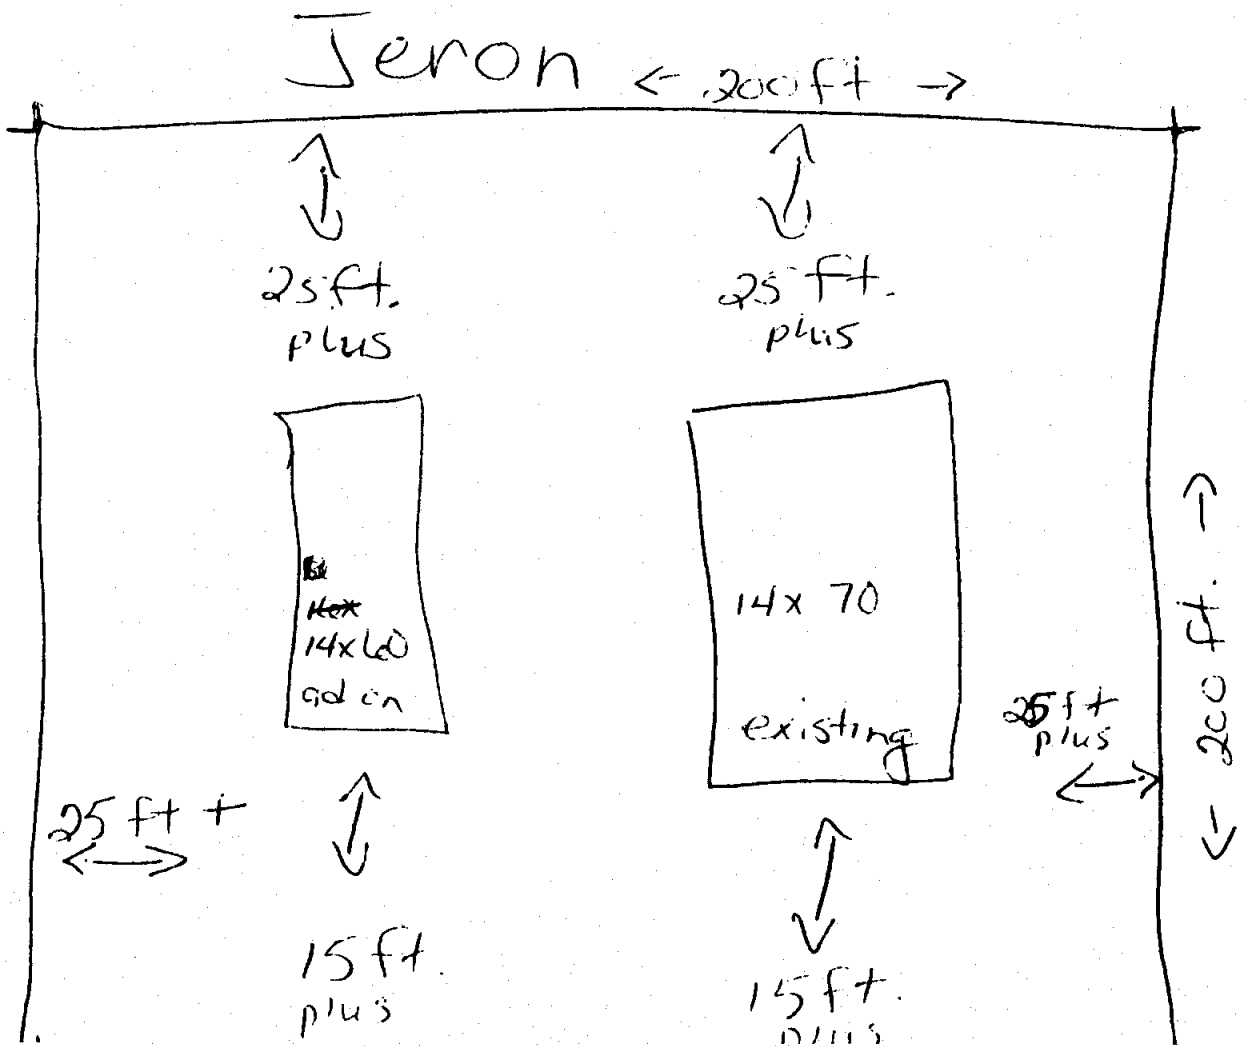 Jeron
200ft
25ft.
plus
25 ft.
plus
14x60
ad on
14x 70
existing
25ft
plus
200 ft.
25 ft +
15 ft.
plus
15 ft.
plus